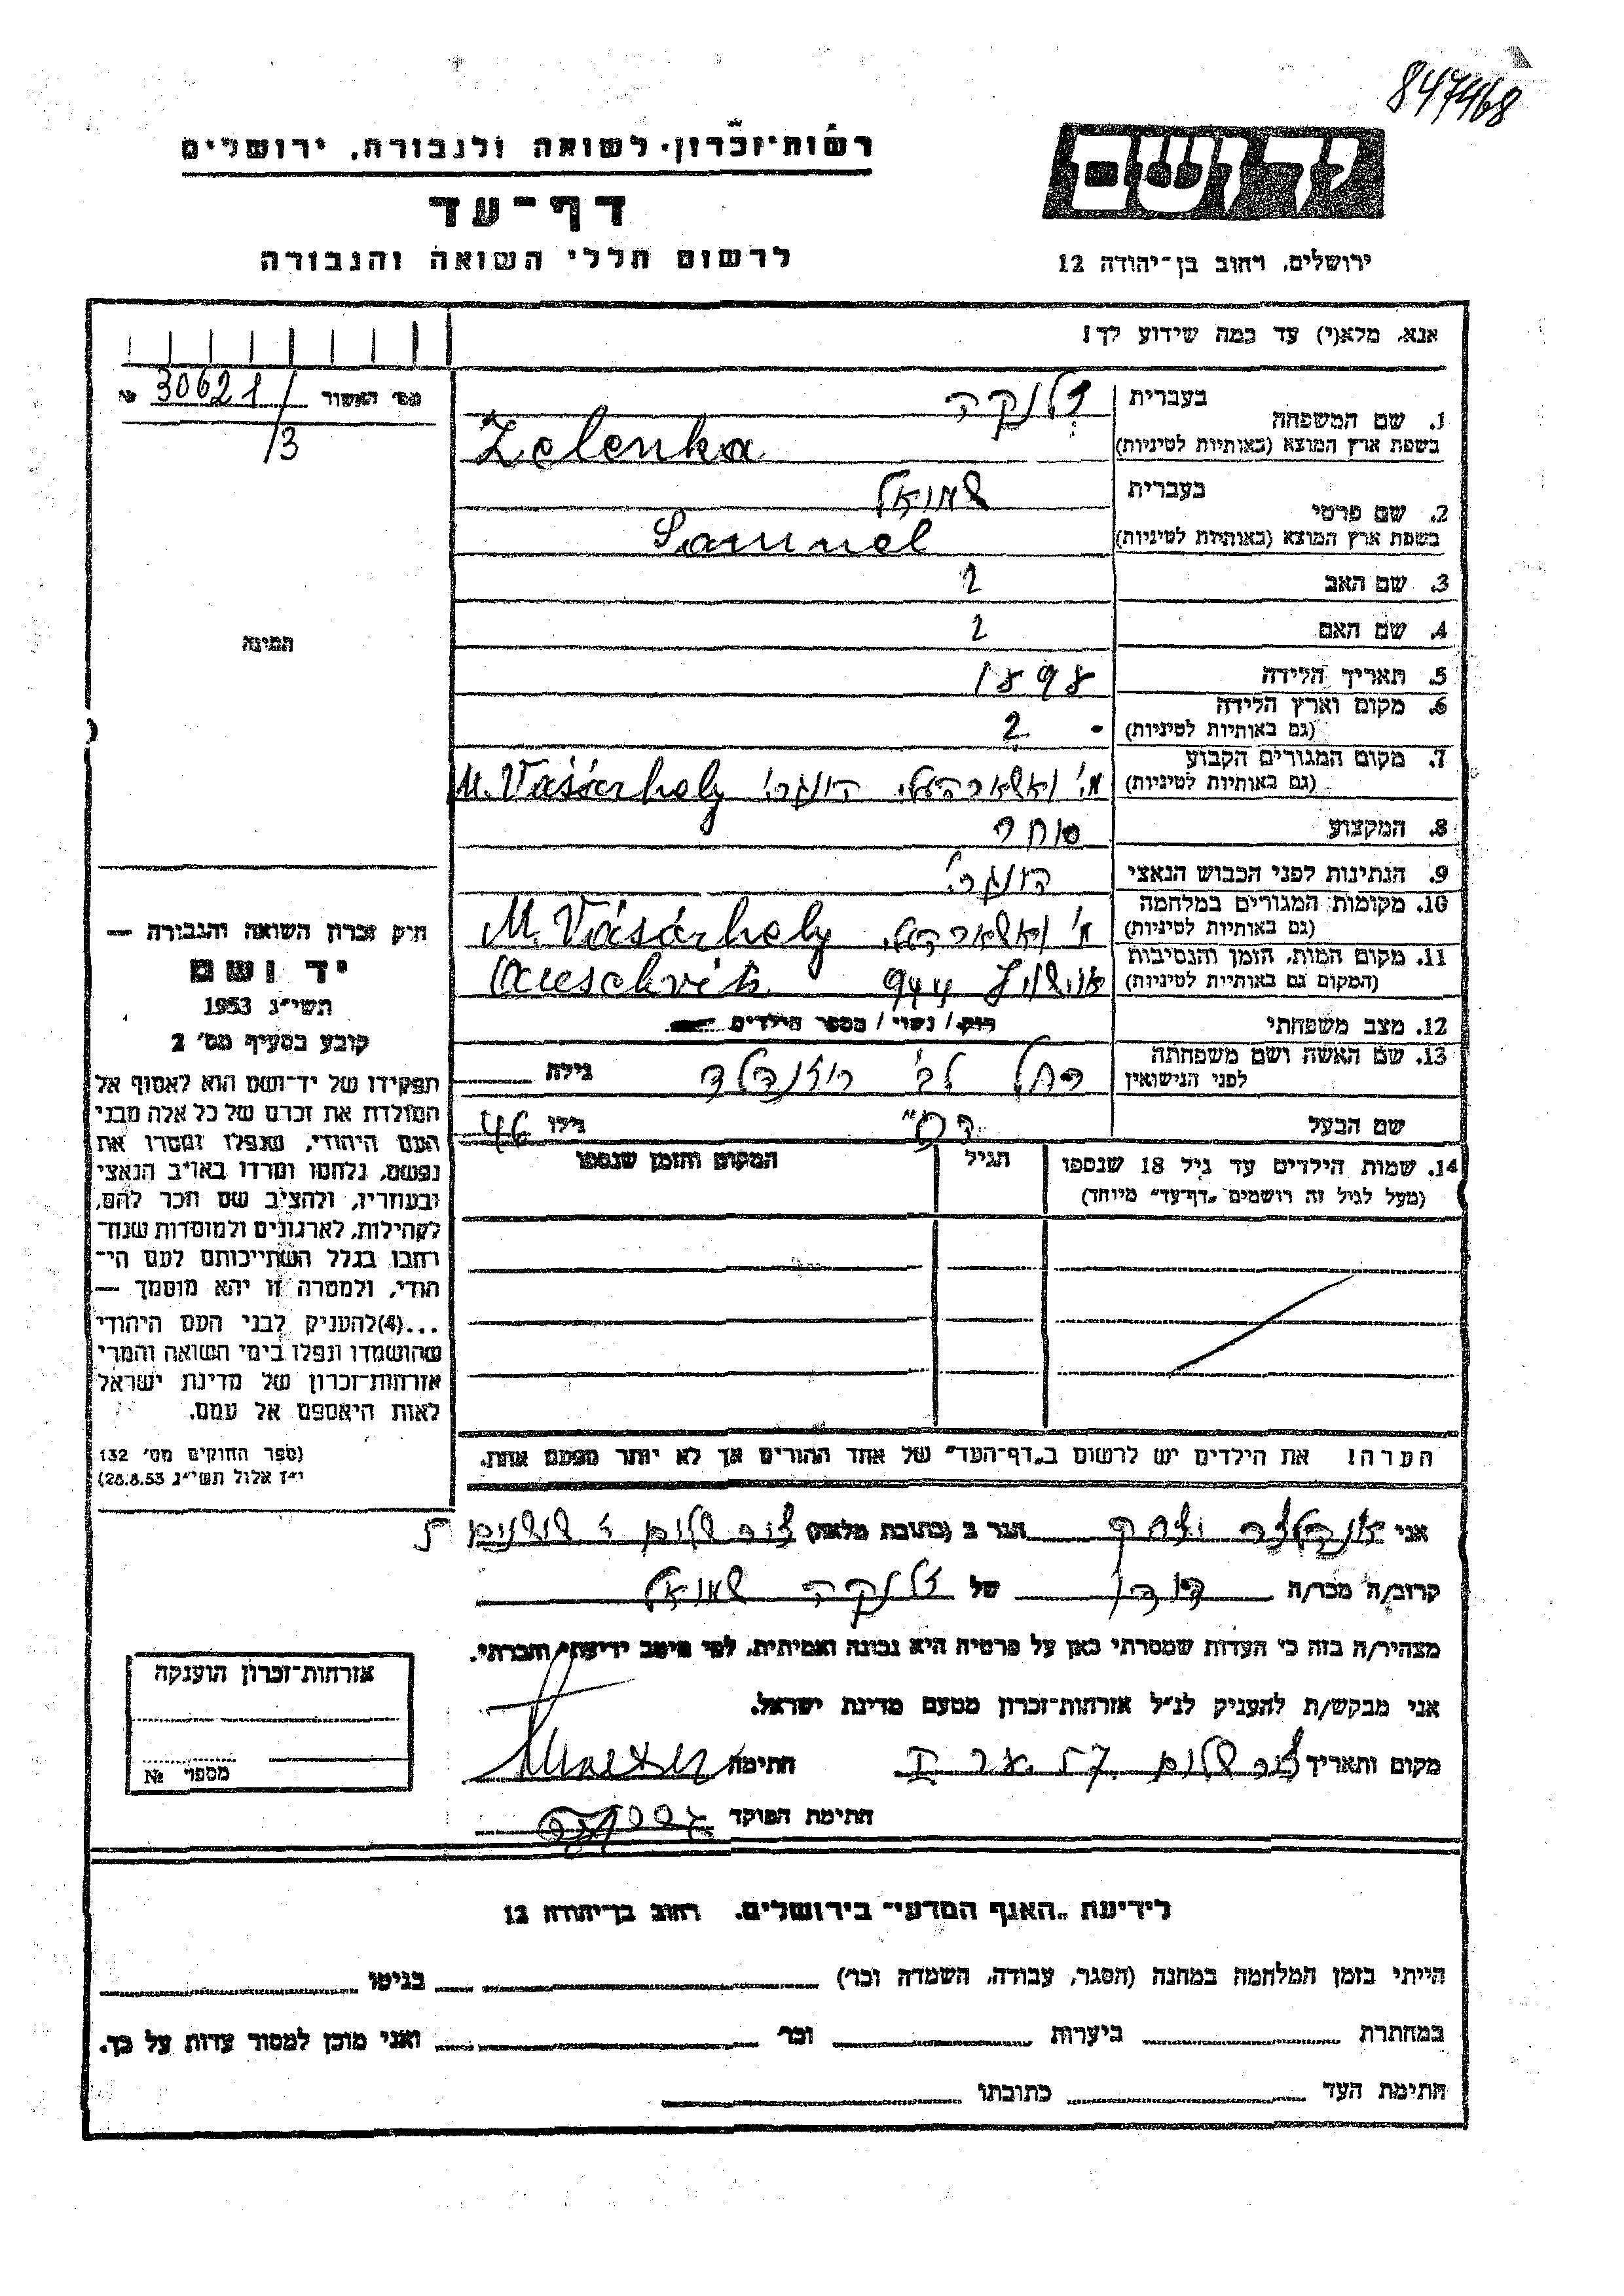 847468
רשות-זכרון לשואה ולגבורה, ירושלים
יד ושם
דף-עד
לרשום חללי השואה והגבורה
ירושלים, רחוב בן-יהודה 12
אנא, מלא(י) עד כמה שידוע לך!
מס' האשור 30621/ №
/3
1. שם המשפחה
בעברית זלנקה
בשפת ארץ המוצא (באותיות לטיניות) Zelenka
2. שם פרטי
בעברית שמואל
בשפת ארץ המוצא (באותיות לטיניות) Samuel
3. שם האב ?
4. שם האם ?
5. תאריך הלידה 1898
6. מקום וארץ הלידה
(גם באותיות לטיניות) ?
7. מקום המגורים הקבוע
(גם באותיות לטיניות) מ. ואשארהלי, הונגרי M. Vásárhely
8. המקצוע סוחר
9. הנתינות לפני הכבוש הנאצי הונגרי
10. מקומות המגורים במלחמה
(גם באותיות לטיניות) מ' ואשארהלי M. Vásárhely
11. מקום המות, הזמן והנסיבות
(המקום גם באותיות לטיניות) אושויץ 944 Auschvitz
12. מצב משפחתי רווק / נשוי / מספר הילדים
13. שם האשה ושם משפחתה
לפני הנישואין רחל לבי רוזנפלד גילה
שם הבעל הנ"ל גילו 46
14. שמות הילדים עד גיל 18 שנספו
(מעל לגיל זה רושמים "דף-עד" מיוחד)
הגיל
המקום והזמן שנספו
הערה! את הילדים יש לרשום ב"דף-העד" של אחד ההורים אך לא יותר מפעם אחת.
תמונה
חוק זכרון השואה והגבורה —
יד ושם
תשי"ג 1953
קובע בסעיף מס' 2
תפקידו של יד-ושם הוא לאסוף אל
המולדת את זכרם של כל אלה מבני
העם היהודי, שנפלו ומסרו את
נפשם, נלחמו ומרדו באויב הנאצי
ובעוזריו, ולהציב שם וזכר להם,
לקהילות, לארגונים ולמוסדות שנח-
רבו בגלל השתייכותם לעם הי-
הודי, ולמטרה זו יהא מוסמך —
...(4) להעניק לבני העם היהודי
שהושמדו ונפלו בימי השואה והמרי
אזרחות-זכרון של מדינת ישראל
לאות היאספם אל עמם.
(ספר החוקים מס' 132
י"ז אלול תשי"ג 28.8.53)
אני יצחק הגר ב (כתובת מלאה)
קרוב/ה מכר/ה דודן של זלנקה שמואל
מצהיר/ה בזה כי העדות שמסרתי כאן על פרטיה היא נכונה ואמיתית, לפי מיטב ידיעתי והכרתי.
אני מבקש/ת להעניק לנ"ל אזרחות-זכרון מטעם מדינת ישראל.
מקום ותאריך חתימה
חתימת הפוקד
אזרחות-זכרון הוענקה
מספר №
לידיעת "האגף המדעי" בירושלים, רחוב בן-יהודה 12
הייתי בזמן המלחמה במחנה (הסגר, עבודה, השמדה וכו') בגיטו
במחתרת ביערות וכו' ואני מוכן למסור עדות על כך.
חתימת העד כתובתו